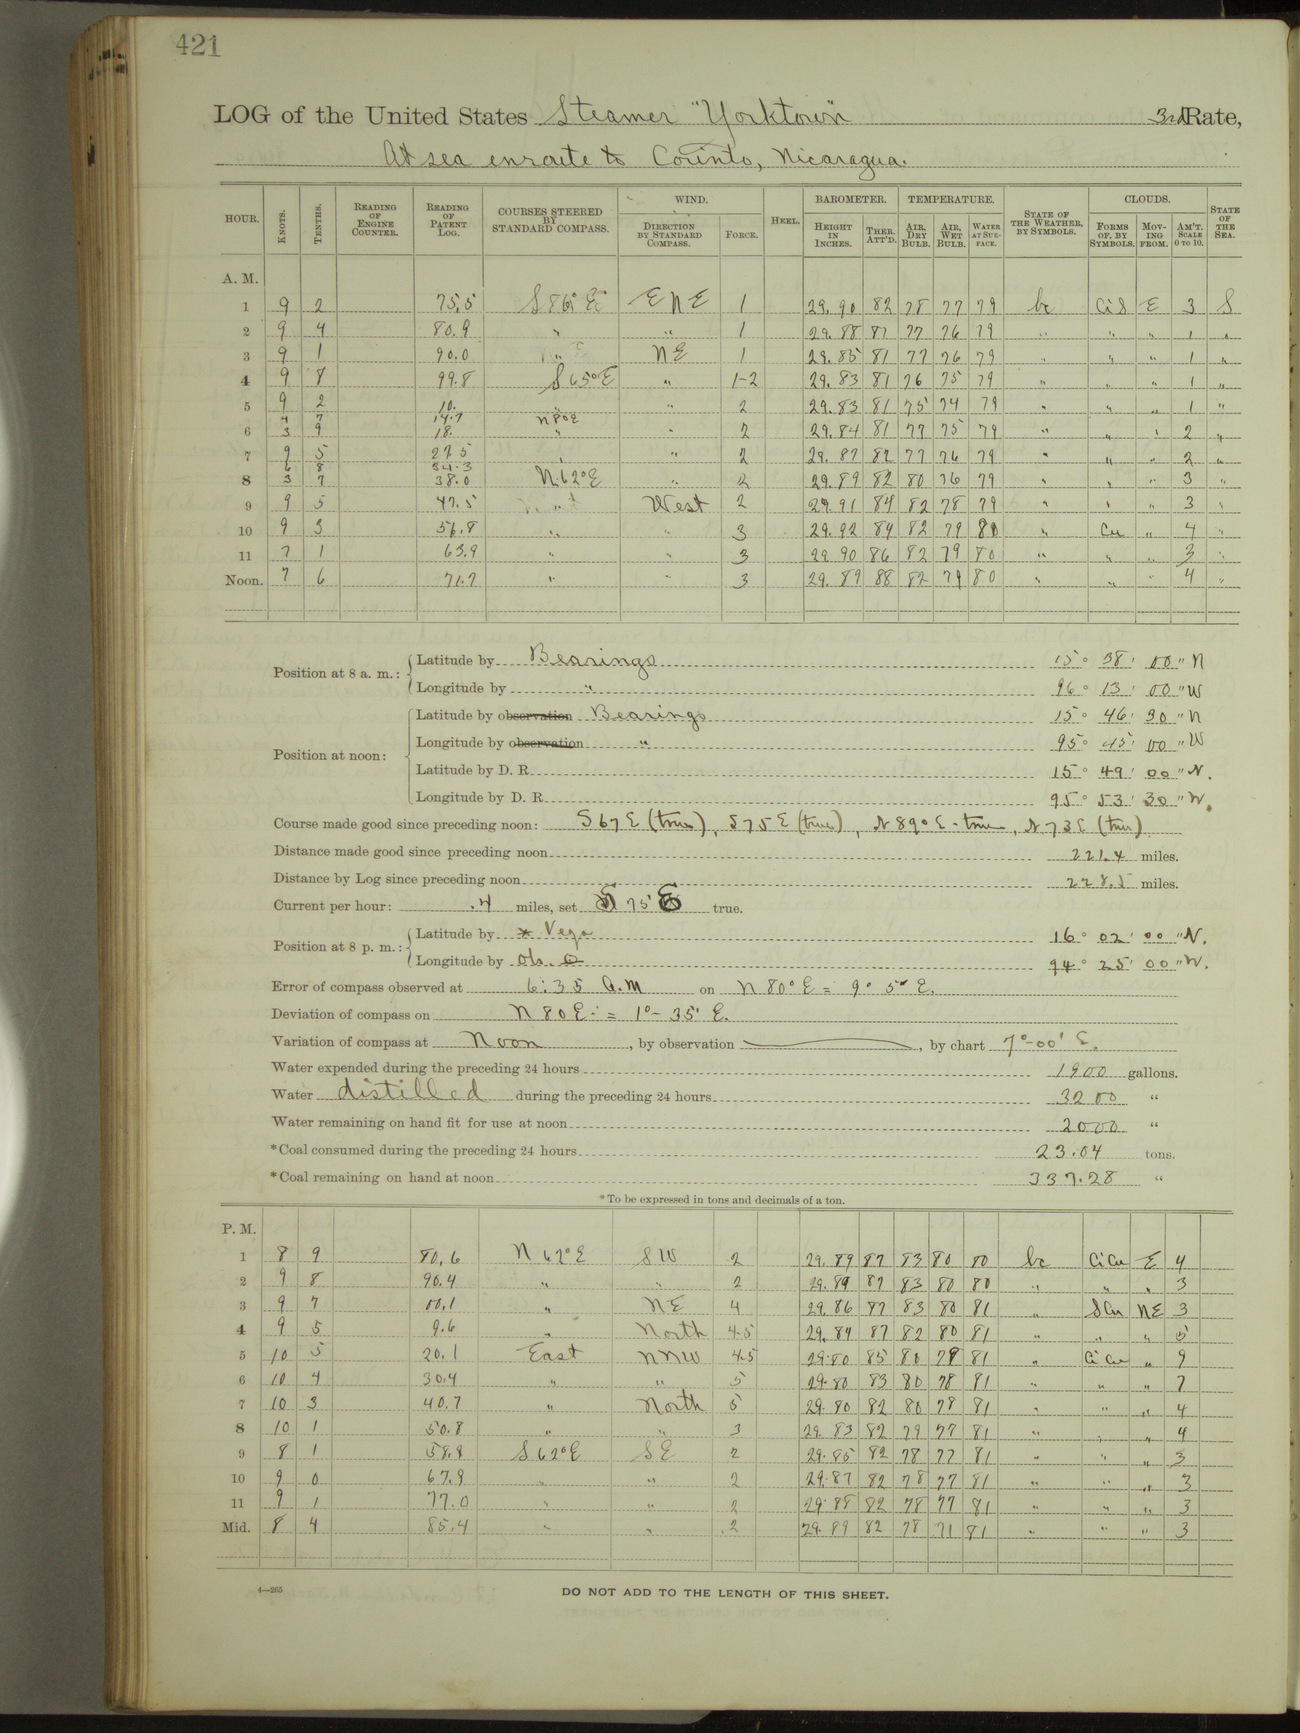 421
LOG of the United States Steamer "Yorktown" 3rd Rate,
At sea enroute to Corinto, Nicaragua.
HOUR. KNOTS. TENTHS. READING OF ENGINE COUNTER. READING OF PATENT LOG. COURSES STEERED BY STANDARD COMPASS. WIND. DIRECTION BY STANDARD COMPASS. FORCE. HEEL. BAROMETER. HEIGHT IN INCHES. THER. ATT'D. TEMPERATURE. AIR, DRY BULB. AIR, WET BULB. WATER AT SURFACE. STATE OF THE WEATHER, BY SYMBOLS. CLOUDS. FORMS OF, BY SYMBOLS. MOVING FROM. AM'T. SCALE 0 TO 10. STATE OF THE SEA.
A. M.
1 9 2 75.5 S 86° E ENE 1 29.90 82 78 77 79 bc CiS E 3 S
2 9 4 80.9 " " 1 29.88 81 77 76 79 " " " 1 "
3 9 1 90.0 " NE 1 29.85 81 77 76 79 " " " 1 "
4 9 8 99.8 S 65° E " 1-2 29.83 81 76 75 79 " " " 1 "
5 9 2 10. " 2 29.83 81 75 74 79 " " " 1 "
4 7 14.7 N 80 E
6 3 9 18. " " 2 29.84 81 77 75 79 " " " 2 "
7 9 5 27.5 " " 2 29.87 82 77 76 79 " " " 2 "
6 8 34.3
8 3 7 38.0 N 62° E " 2 29.89 82 80 76 79 " " " 3 "
9 9 5 47.5 " West 2 29.91 84 82 78 79 " " " 3 "
10 9 3 56.8 " " 3 29.92 84 82 79 80 " Cu " 4 "
11 7 1 63.9 " " 3 29.90 86 82 79 80 " " " 3 "
Noon. 7 6 71.7 " " 3 29.89 88 82 79 80 " " " 4 "
Position at 8 a. m.: Latitude by Bearings 15° 38' 00" N
Longitude by " 96° 13' 00" W
Position at noon: Latitude by observation Bearings 15° 46' 30" N
Longitude by observation " 95° 45' 00" W
Latitude by D. R. 15° 49' 00" N.
Longitude by D. R. 95° 53' 30" W.
Course made good since preceding noon: S 67 E (true), S 75 E (true), N 89° E - true, N 73 E (true)
Distance made good since preceding noon 221.4 miles.
Distance by Log since preceding noon 228.5 miles.
Current per hour: .4 miles, set 75 true.
Position at 8 p. m.: Latitude by * Vega 16° 02' 00" N.
Longitude by 94° 25' 00" W.
Error of compass observed at 6:35 a.m on N 80° E = 9° 5' E.
Deviation of compass on N 80 E = 1° - 35' E.
Variation of compass at Noon, by observation , by chart 7° - 00' E.
Water expended during the preceding 24 hours 1900 gallons.
Water distilled during the preceding 24 hours 3200 "
Water remaining on hand fit for use at noon 2000 "
*Coal consumed during the preceding 24 hours 23.04 tons.
*Coal remaining on hand at noon 337.28 "
*To be expressed in tons and decimals of a ton.
P. M.
1 8 9 80.6 N 62° E SW 2 29.89 87 83 80 80 bc CiCu E 4
2 9 8 90.4 " " 2 29.89 87 83 80 80 " " " 3
3 9 7 00.1 " NE 4 29.86 87 83 80 81 " SCu NE 3
4 9 5 9.6 " North 4-5 29.84 87 82 80 81 " " " 5
5 10 5 20.1 East NNW 4-5 29.80 85 80 79 81 " CiCu " 9
6 10 4 30.4 " " 5 29.80 83 80 78 81 " " " 7
7 10 3 40.7 " North 5 29.80 82 80 78 81 " " " 4
8 10 1 50.8 " " 3 29.83 82 79 77 81 " " " 4
9 8 1 58.8 S 62° E SE 2 29.85 82 78 77 81 " " " 3
10 9 0 67.9 " " 2 29.87 82 78 77 81 " " " 3
11 9 1 77.0 " " 2 29.88 82 78 77 81 " " " 3
Mid. 8 4 85.4 " " 2 29.89 82 78 71 81 " " " 3
4—265
DO NOT ADD TO THE LENGTH OF THIS SHEET.